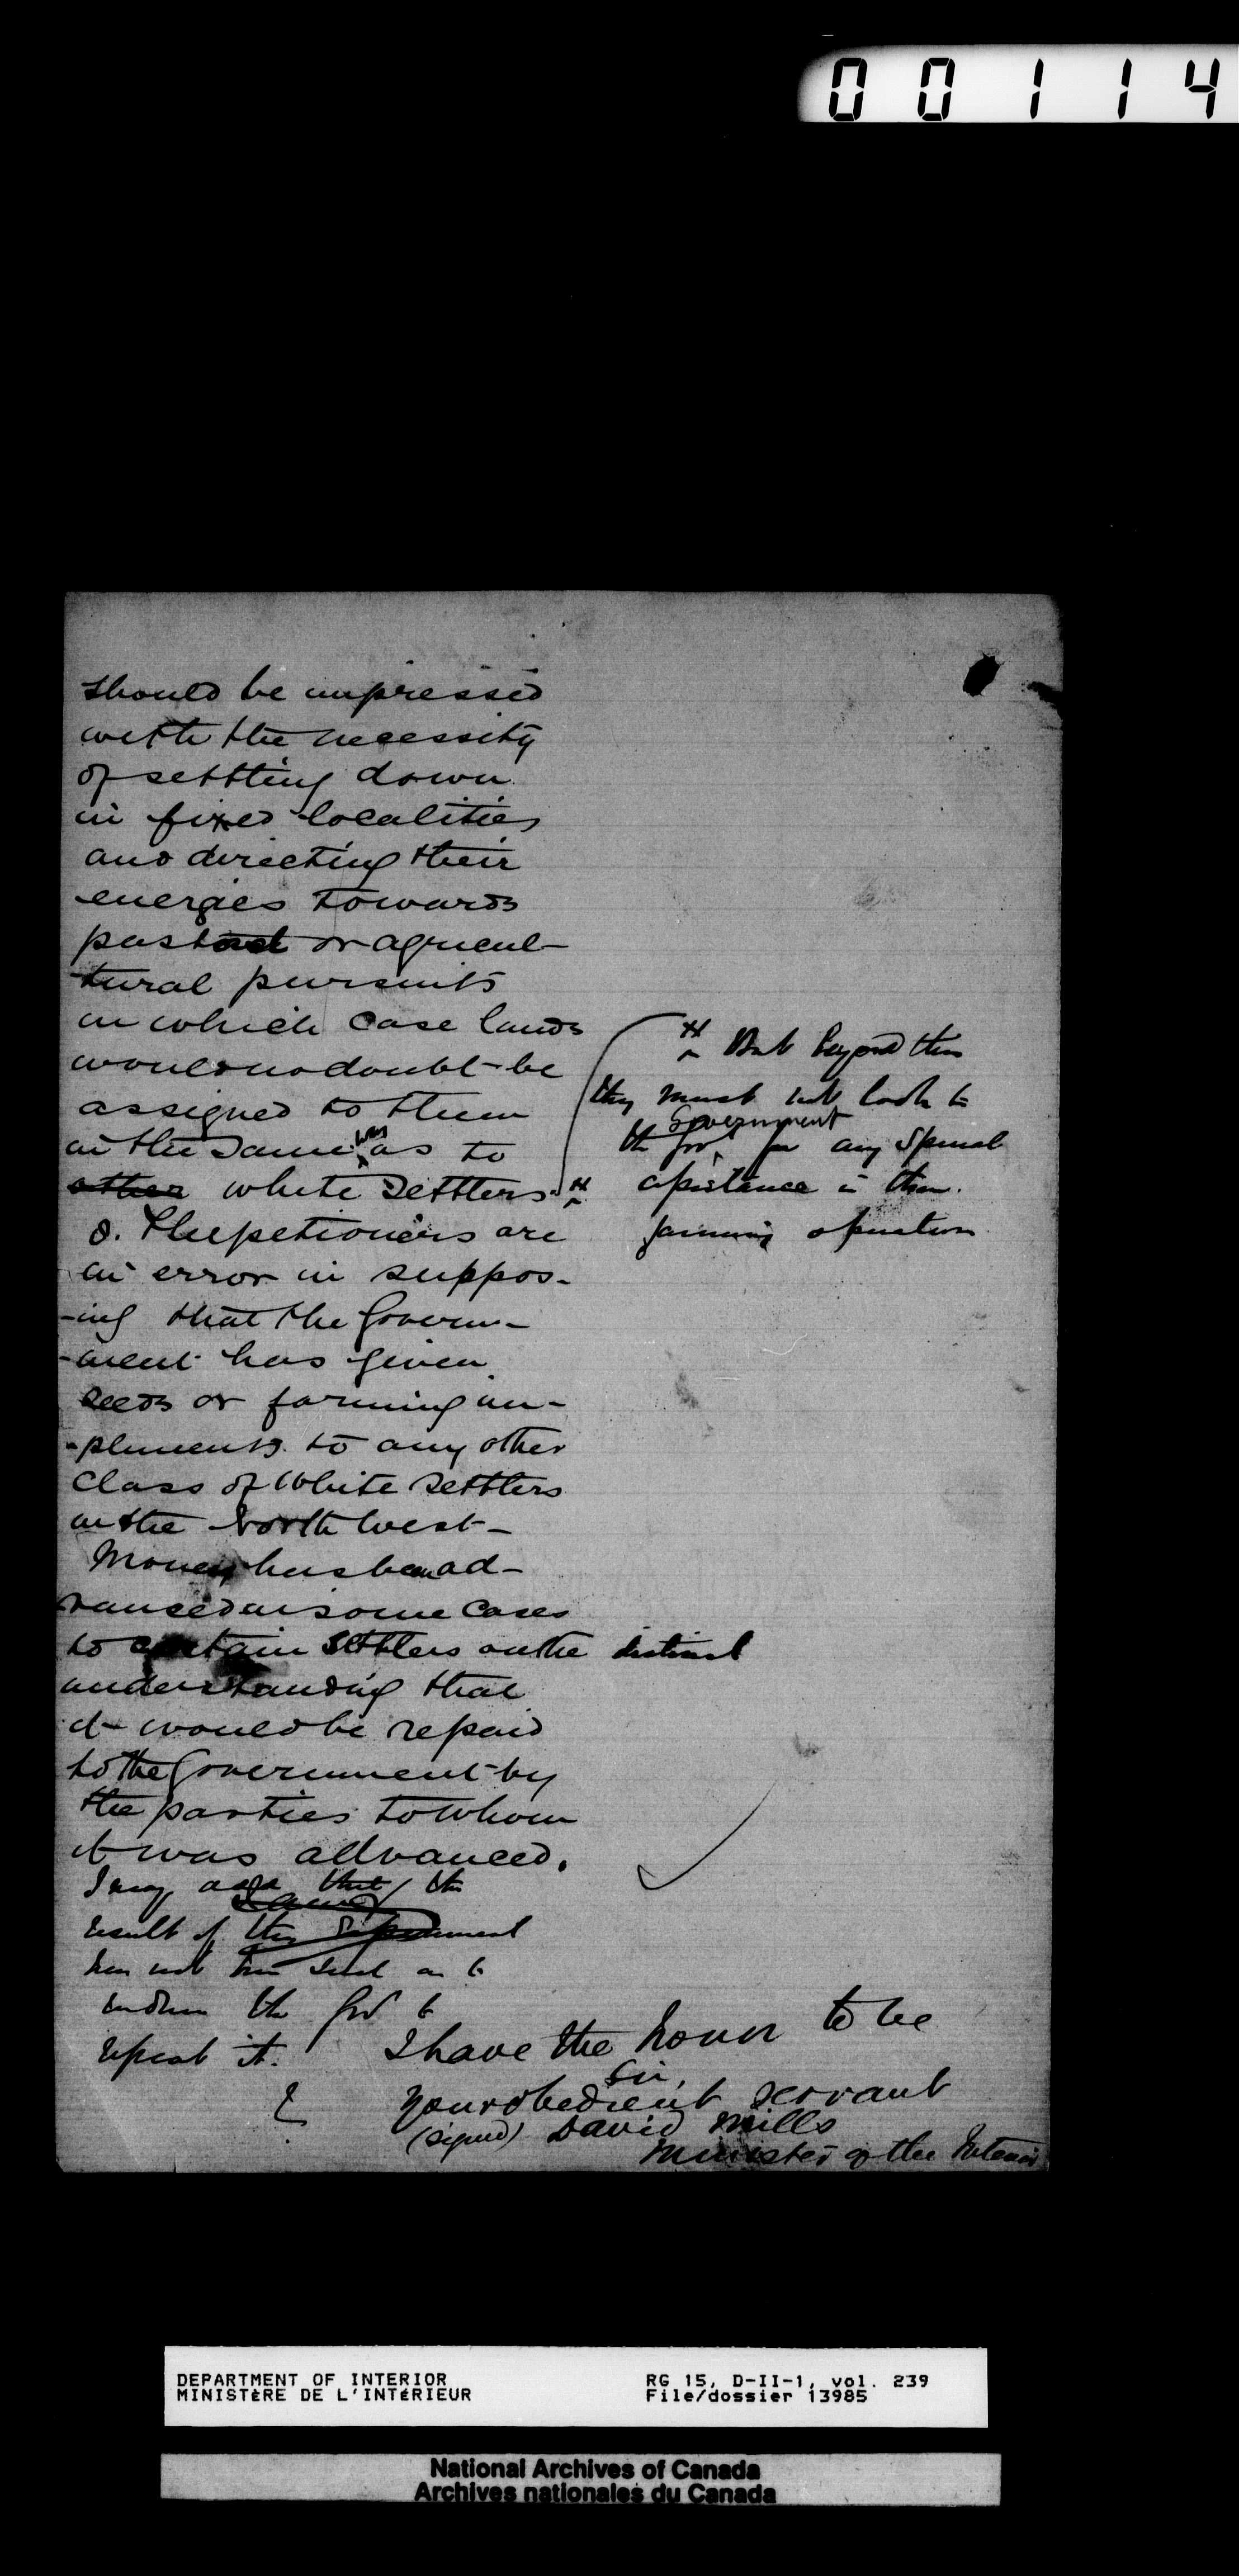 00114
should be impressed
with the necessity
of settling down
in fixed localities
and directing their
energies towards
pastoral or agricul-
tural pursuits
in which case lands
would no doubt be
assigned to them
in the same way as to
other white settlers.
But beyond this
they must not look to
the Gov^t Government for any special
assistance in their
farming operations
8. The petioners are
in error in suppos-
-ing that the Govern-
-ment has given
seeds or farming im-
-plements to any other
class of white settlers
in the North West -
Money has been ad-
vanced in some cases
to certain settlers on the distinct
understanding that
it would be repaid
to the Government by
the parties to whom
it was advanced.
I may add that the
result of this
has not been such as to
induce the Gov^t to
repeat it.
I have the honor to be
Sir,
your obedient servant
(signed) David Mills
Minister of the Interior
DEPARTMENT OF INTERIOR
MINISTÈRE DE L'INTÉRIEUR
RG 15, D-II-1, vol. 239
File/dossier 13985
National Archives of Canada
Archives nationales du Canada